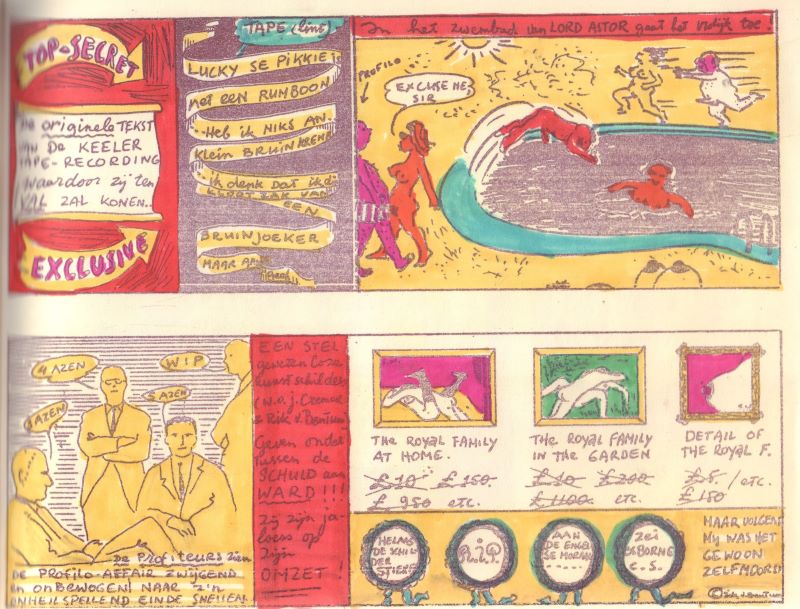 TOP-SECRET
De originele TEKST
VAN De KEELER
TAPE-RECORDING
waardoor zij ten
VAL ZAL KOMEN..
EXCLUSIVE
TAPE (lint)
LUCKY SE PIKKIE is
net een RUMBOON
...Heb ik NIKS AN...
Klein BRUIN
...ik denk Dat ik di
VAN
EEN
BRUINJOEKER
MAAR
In het zwembad van LORD ASTOR gaat het vrolijk toe.
PROFILO
EXCUSE ME
SIR
4 AZEN
WIP
3 AZEN
5 AZEN
De PROFiteurs zien
DE PROFILO-AFFAIR ZWIJGEND
en onBEWOGEN! NAAR Z'n
ONHEILSPELLEND EINDE SNELLEN.
EEN STEL
geweten Loze
kunstschilders
(w.o. j. Czemak
& Rik v Bentum)
Geven onder
tussen de
SCHULD aan
WARD !!!
Zij zijn ja-
loers op
zijn
OMZET!
THE ROYAL FAMILY
AT HOME.
£10 £150
£950 etc.
THE ROYAL FAMILY
IN THE GARDEN
£10 £200
£1100 etc.
DETAIL OF
THE ROYAL F.
£5. / etc.
£180
HELAAS
DE SCHIL
DER
STIERF
R.i.P.
AAN
DE ENGEL
SE MORAAL
.....
Zei
OSBORNE
e.s.
MAAR VOLGENS
MIJ WAS HET
GEWOON
ZELFMOORD